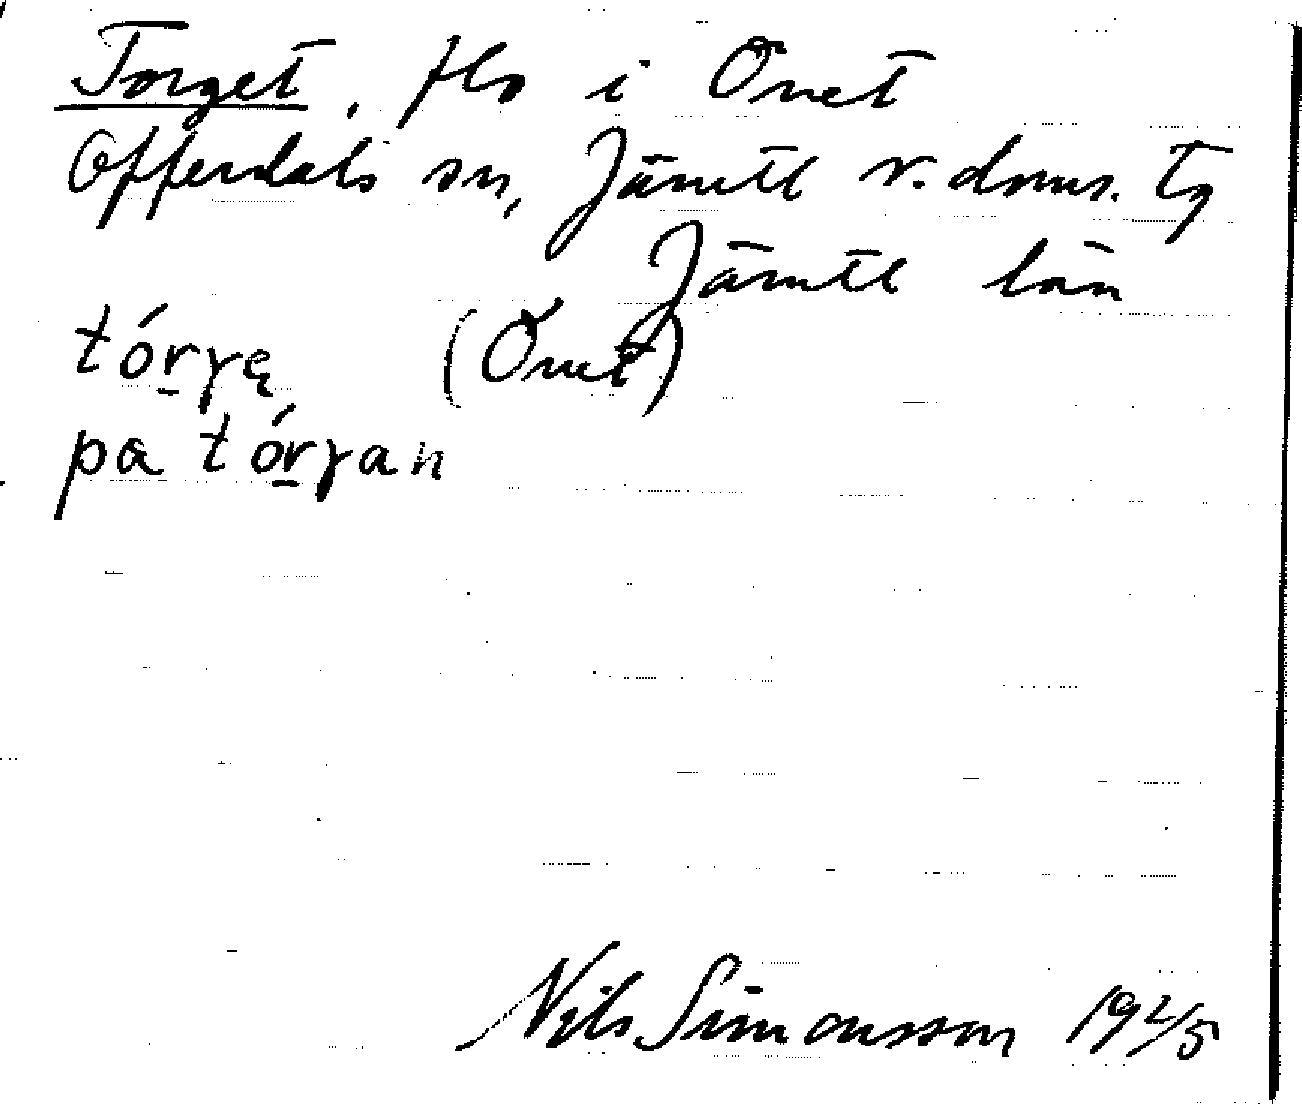 Torget, fls i Önet
Offerdals sn, Jämtl v. doms. tg
Jämtl län
tór̠γę (Önet)
pa tór̠γan
Nils Simonsson 19 2/5